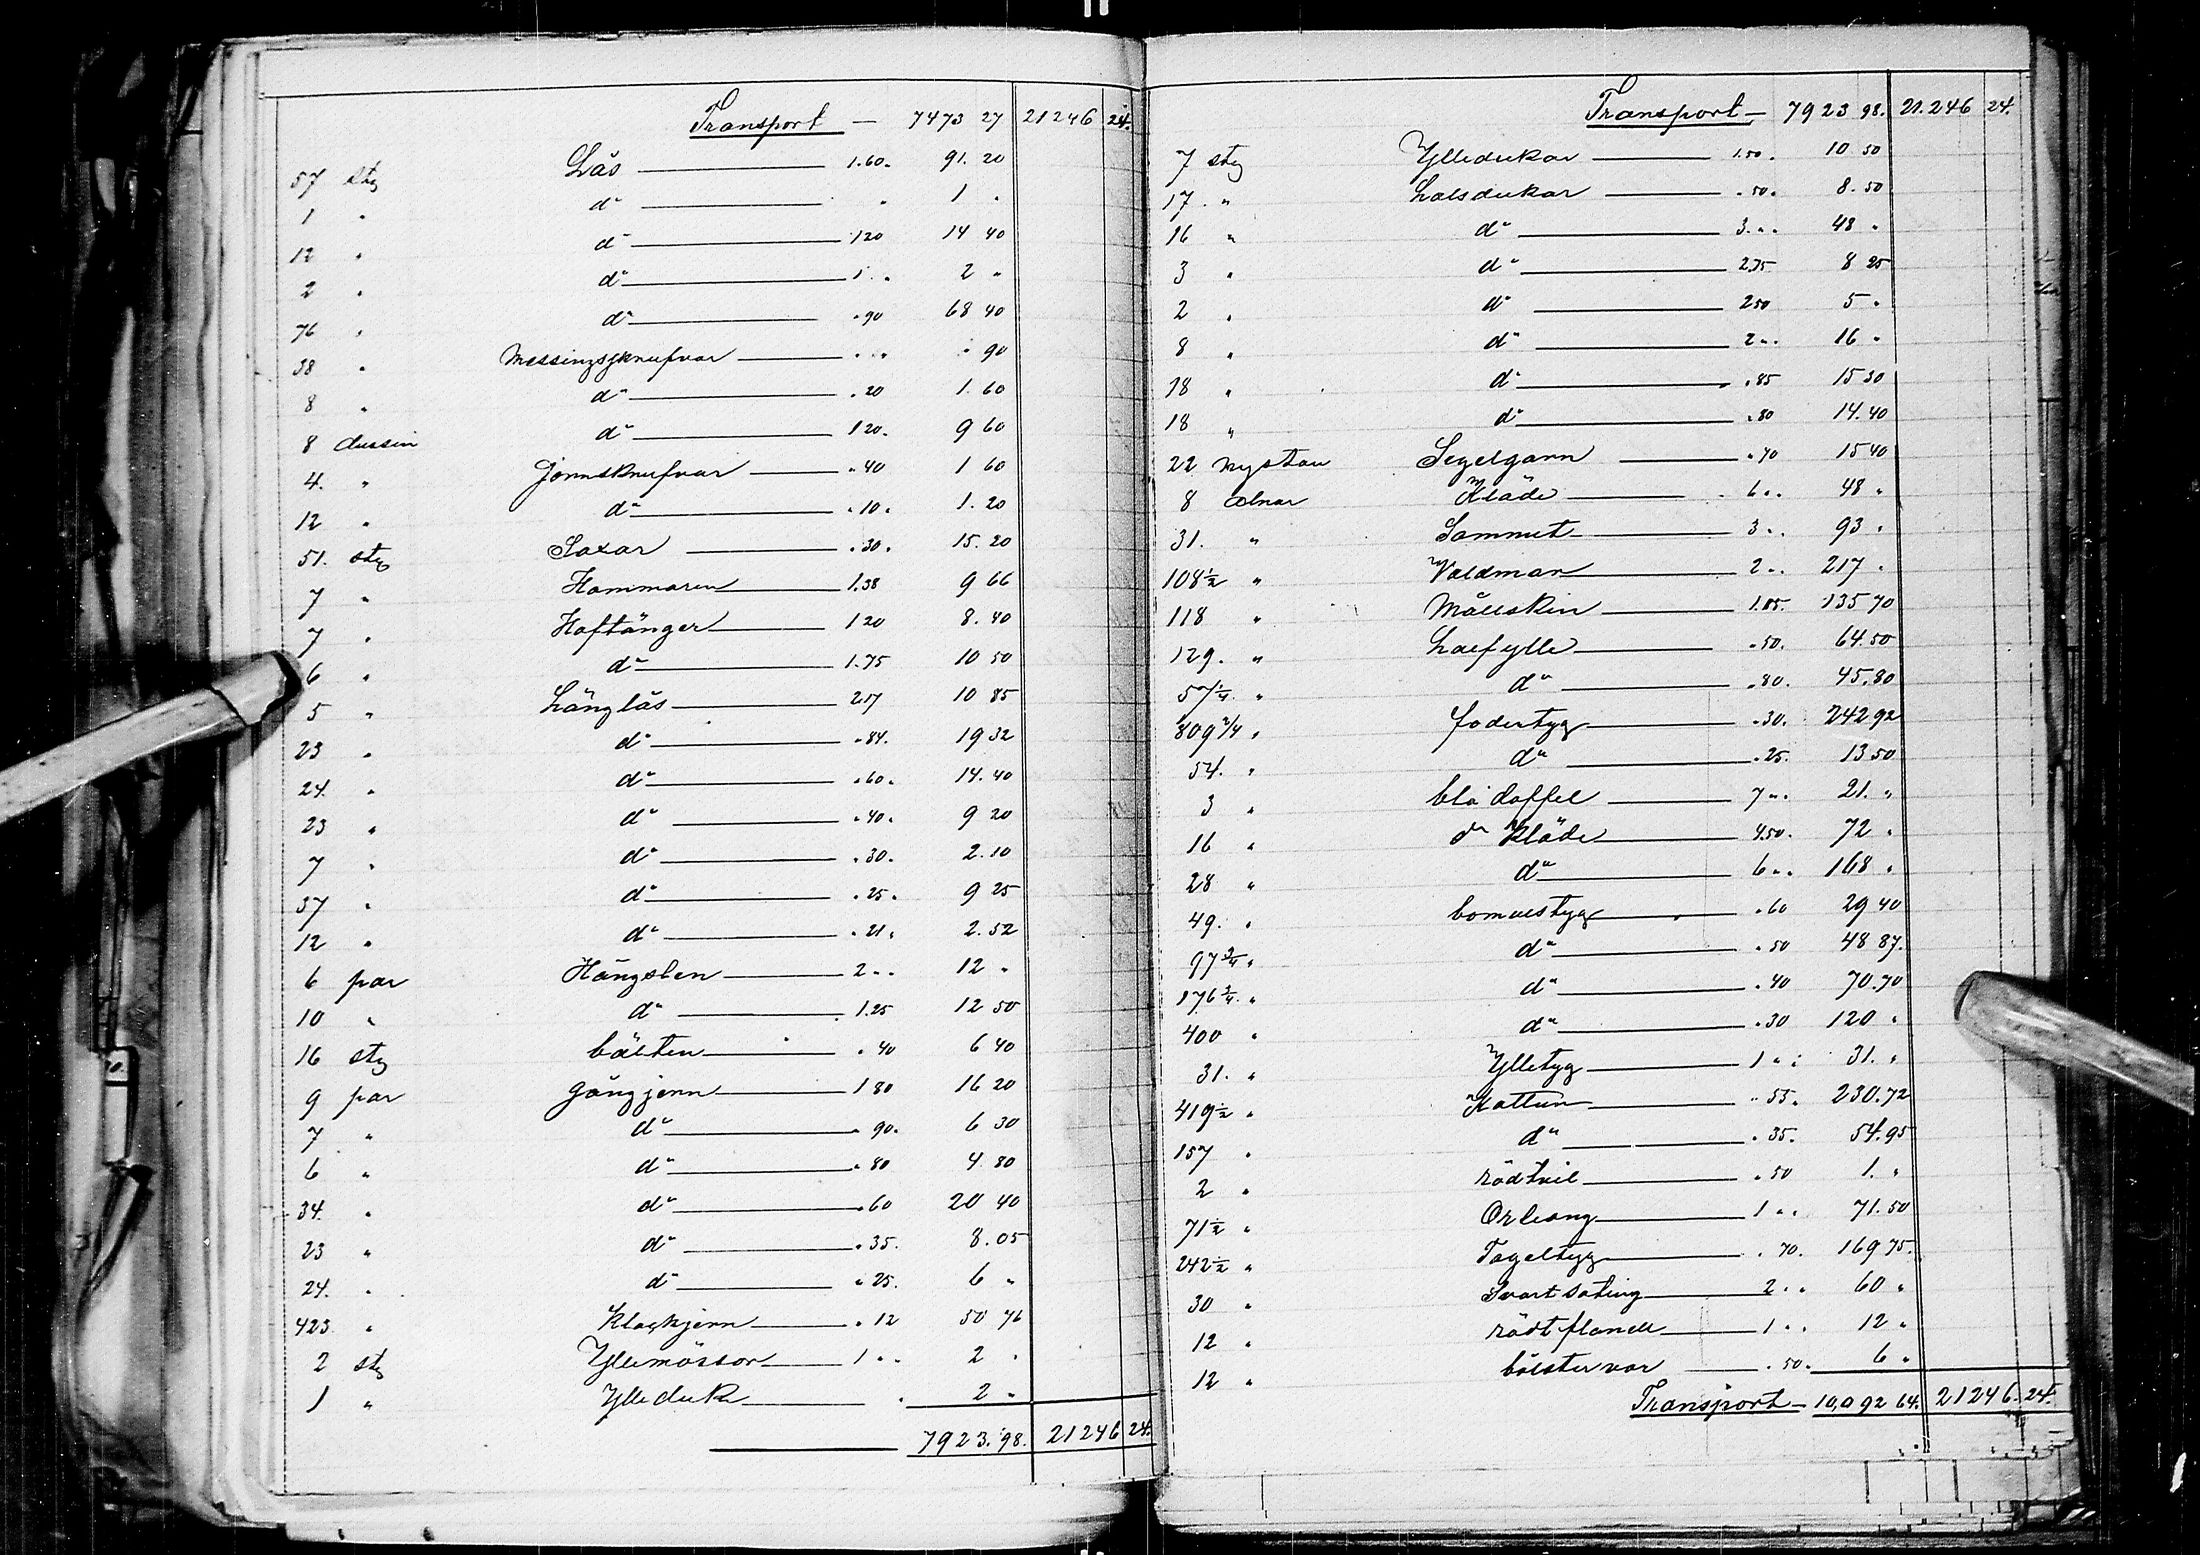 Transport — 7473 27 21246 24.
57 stg Lås 1.60. 91. 20
1 " d° " 1 "
12 " d° 1 20 14 40
2 " d° 1 " 2 "
76 " d° " 90 68 40
38 " Messingsskrufvar " " " 90
8 " d° . 20 1. 60
8 dussin d° 1 20. 9 60
4. " Jernskrufvar " 40 1 60
12 " d° " 10 " 1. 20
51. stg Saxar " 30. 15. 20
7 " Hammaren 1.38 9 66
7 " Hoftänger 1 20 8. 40
6 " d° 1.75 10 50
5 " Hänglås 2 17 10 85
23 " d° " 84. 19 32
24. " d° " 60. 14. 40
23 " d° " 40. 9 20
7 " d° . 30. 2. 10
37 " d° . 25. 9 25
12 " d° . 21. 2. 52
6 par Hängslen 2 " " 12 "
10 " d° 1.25 12 50
16 stg bälten . 40 6 40
9 par gångjern 1 80 16 20
7 " d° " 90. 6 30
6 " d° " 80 4. 80
34. " d° " 60 20 40
23 " d° " 35. 8. 05
24. " d° " 25. 6 "
423 " Klackjern " 12 50 76
2 stg Yllemössor 1 " " 2 "
1 " Ylleduk " 2 "
7923. 98. 21246 24.
Transport — 7923 98. 21.246 24.
7 stg Ylledukar 1.50. 10 50
17. " Halsdukar " 50. 8. 50
16 " d° 3. " " 48 "
3 " d° 2.75 8 25
2 " d° 2 50 5 "
8 " d° 2 " " 16 "
18 " d° " 85 15 30
18 " d° " 80 14. 40
22 nystan Segelgarn " 70 15 40
8 alnar Kläde 6 " " 48 "
31. " Sammet 3 " " 93 "
108 1/2 " Valdmar 2 " " 217 "
118 " Mållskin 1.15. 135 70
129. " Halfylle " 50. 64. 50
57 1/4. " d° " 80. 45. 80
809 3/4 " fodertyg " 30. 242 92
54. " d° " 25. 13 50
3 " blå doffel 7 " " 21. "
16 " d° Kläde 4.50. 72 "
28 " d° 6 " " 168 "
49. " bomulstyg " 60 29 40
97 3/4 " d° " 50 48 87.
176 3/4. " d° . 40 70. 70
400 " d° . 30 120 "
31. " Ylletyg 1 " " 31. "
419 1/2 " Kattun " 55. 230. 72
157 " d° " 35. 54. 95
2 " rödtvil " 50 1. "
71 1/2 " Orleang 1 " " 71. 50
242 1/2 " Tageltyg . 70. 169 75.
30 " Svart sating 2 " " 60 "
12 " rödt flanell 1 " " 12 "
12 " bolstervar . 50. 6 "
Transport — 10,092 64. 21246. 24.